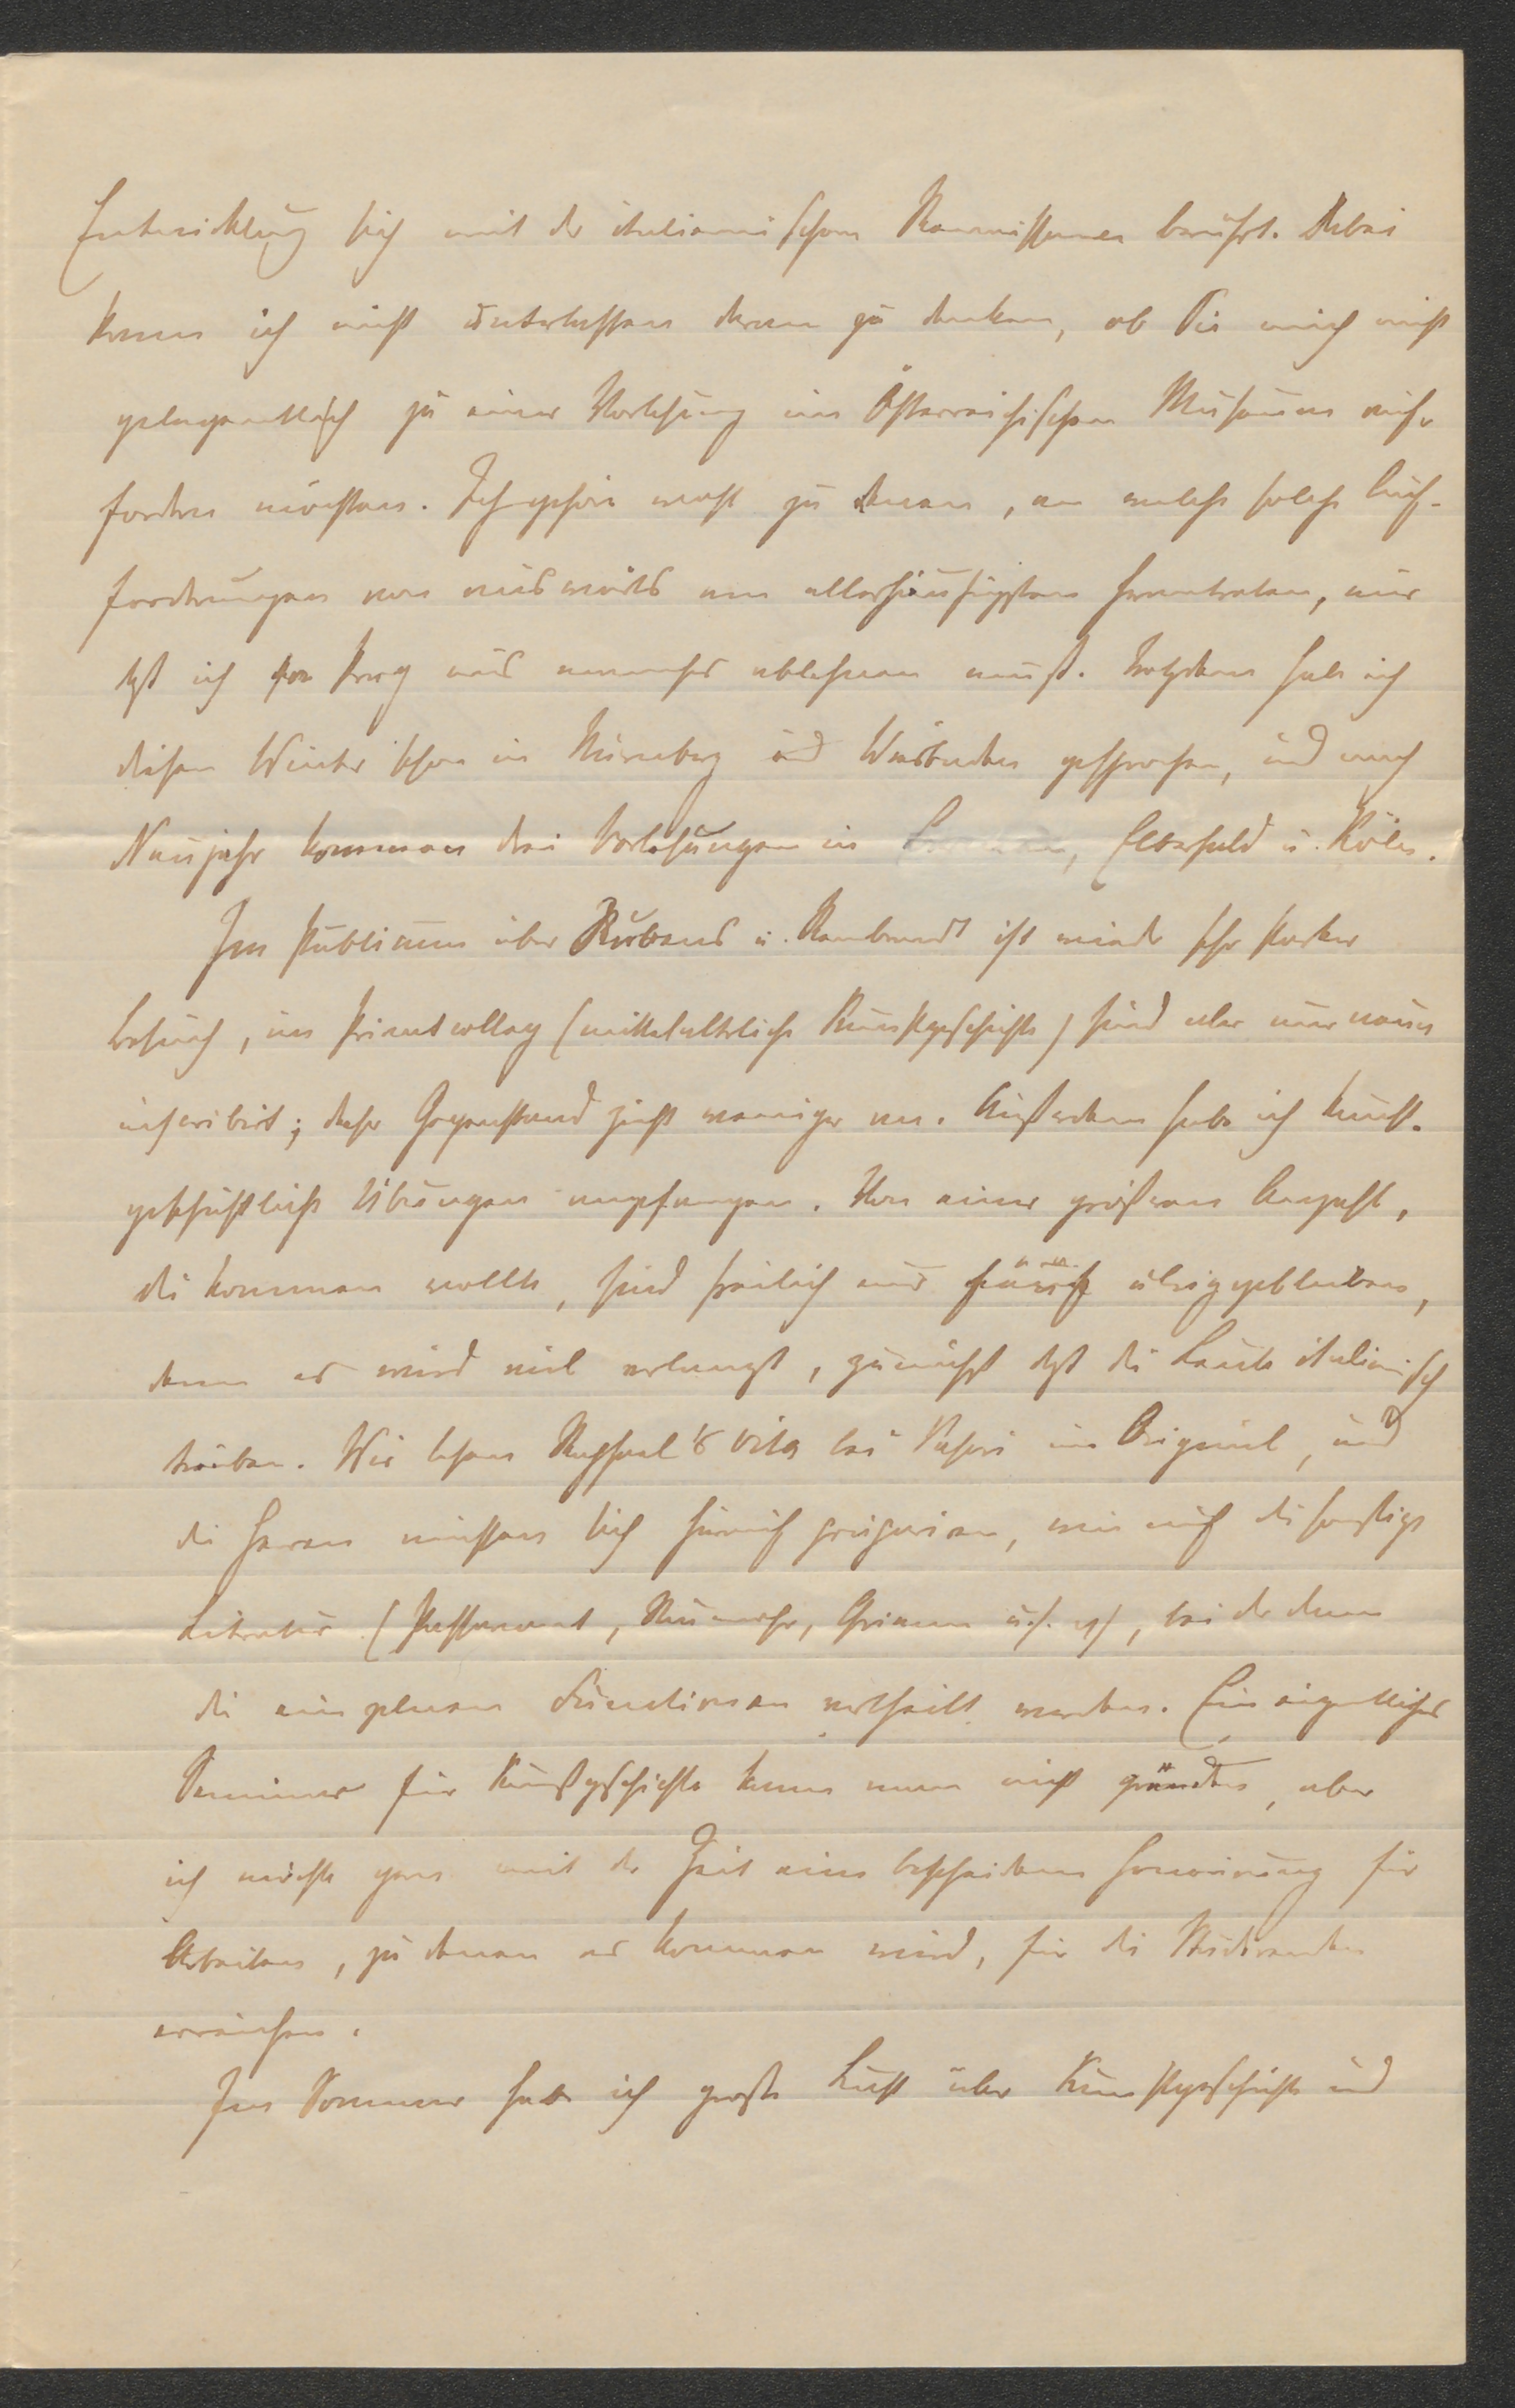 Entwicklung sich mit der italienischen Renaissance berührt. Dabei
kann ich nicht unterlassen daran zu denken, ob Sie mich nicht
gelegentlich zu einer Vorlesung im Österreichischen Museum auf-
fordern möchten. Ich gehöre wohl zu denen, an welche solche Auf-
forderungen von auswärts am allerhäufigsten herantreten, nur
daß ich von Prag aus manches ablehnen muß. Trotzdem habe ich
diesen Winter schon in Nürnberg und Wiesbaden gesprochen, und nach
Neujahr kommen drei Vorlesungen in , Elberfeld u. Köln.
Im Publicum über Rubens u. Rembrandt ist wieder sehr starker
Besuch, im Privatcolleg (mittelalterliche Kunstgeschichte) sind aber nur neun
inscribirt; dieser Gegenstand zieht weniger an. Außerdem habe ich kunst-
geschichtliche Übungen angefangen. Von einer größeren Anzahl,
die kommen wollte, sind freilich nur fünf übriggeblieben,
denn es wird viel verlangt, zunächst daß die Leute italienisch
treiben. Wir lesen Raphael's Vita bei Vasari im Original, und
die Herren müssen sich hineinfinden, wie auch die sonstige
Literatur (Passavant, Rumohr, Grimm u. s. w.), bei der dann
die einzelnen Functionen vertheilt werden. Ein eigentliches
Seminar für Kunstgeschichte kann man nicht gründen, aber
ich möchte gern mit der Zeit eine bescheidene Honorirung für
Arbeiten, zu denen es kommen wird, für die Studirenden
erreichen.
Im Sommer habe ich große Lust über Kunstgeschichte und